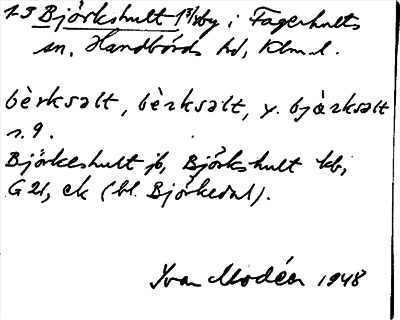 1-3 Björkshult 1 3/8 by i Fagerhults
sn, Handbörds hd, Klm.l.
bèrksəlt, bèrksəlt, y. bjàrksəlt
Björkeshult jb, Björkshult kb,
G 21, ek (bl. Björkedal).
Ivar Modéer 1948